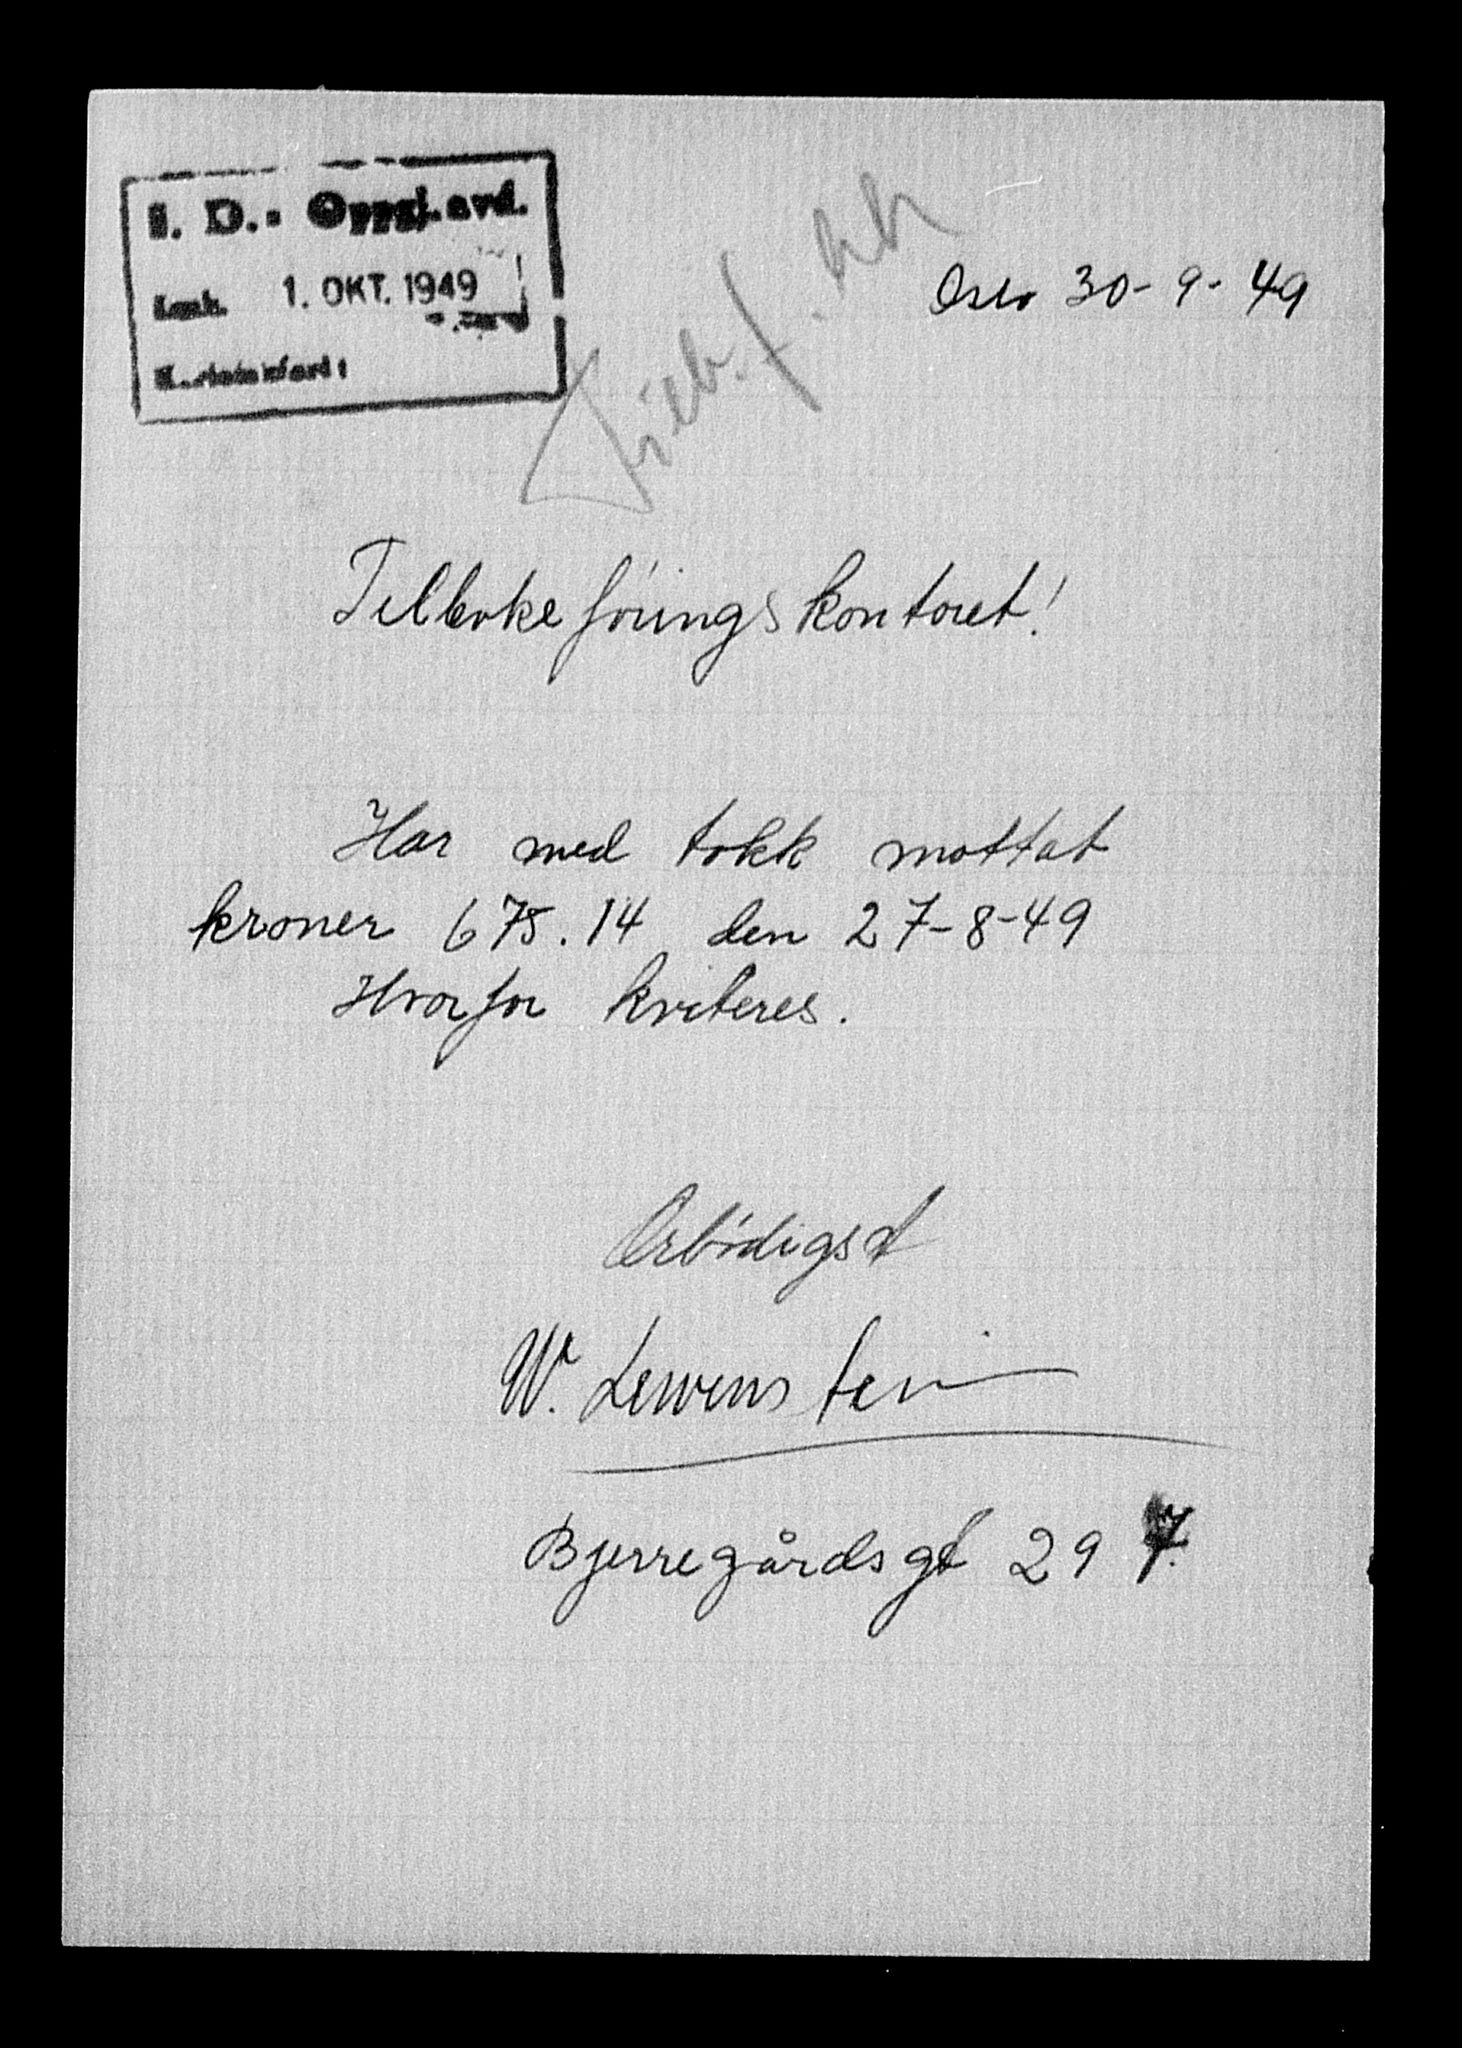 J. D.- Oppgj.avd.
1. OKT. 1949
Oslo 30-9-49
Tilbakeföringskontoret!
Har med takk mottat
kroner 675.14 den 27-8-49
Hvorfor kviteres.
Ærbödigst
W. Lewenstein
Bjerregårdsgt 29 7.